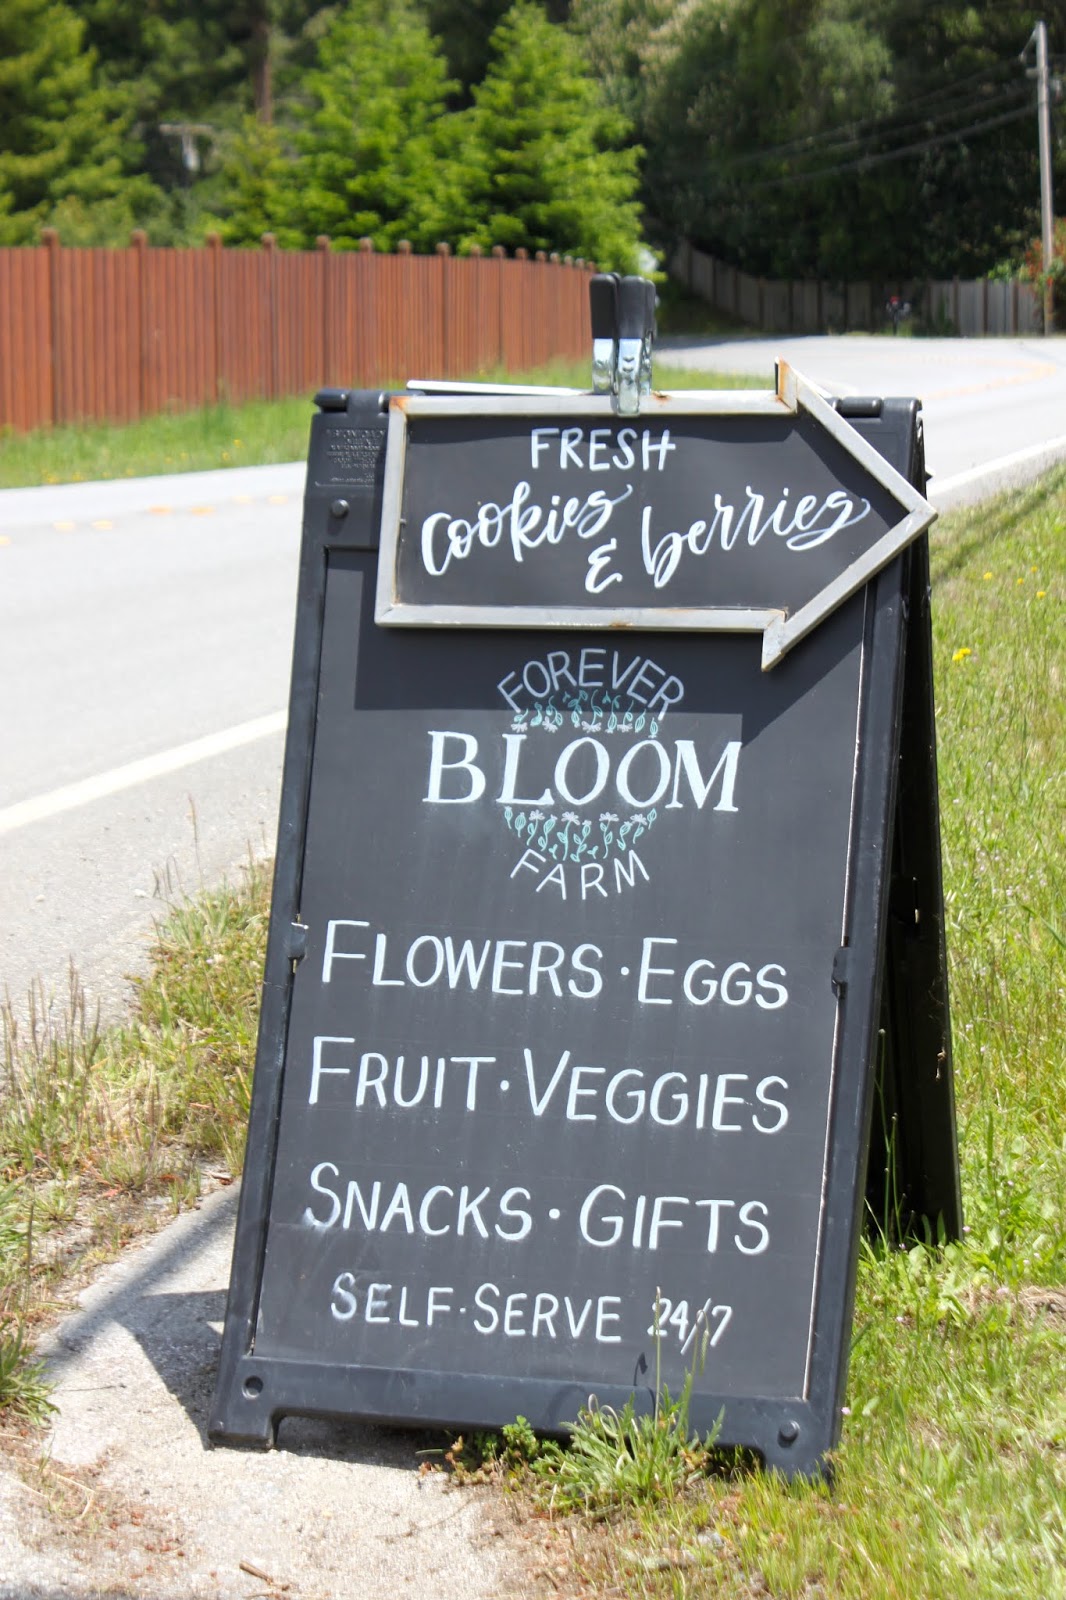 FRESH
cookies & berries
FOREVER
BLOOM
FARM
FLOWERS · EGGS
FRUIT · VEGGIES
SNACKS · GIFTS
SELF-SERVE 24/7